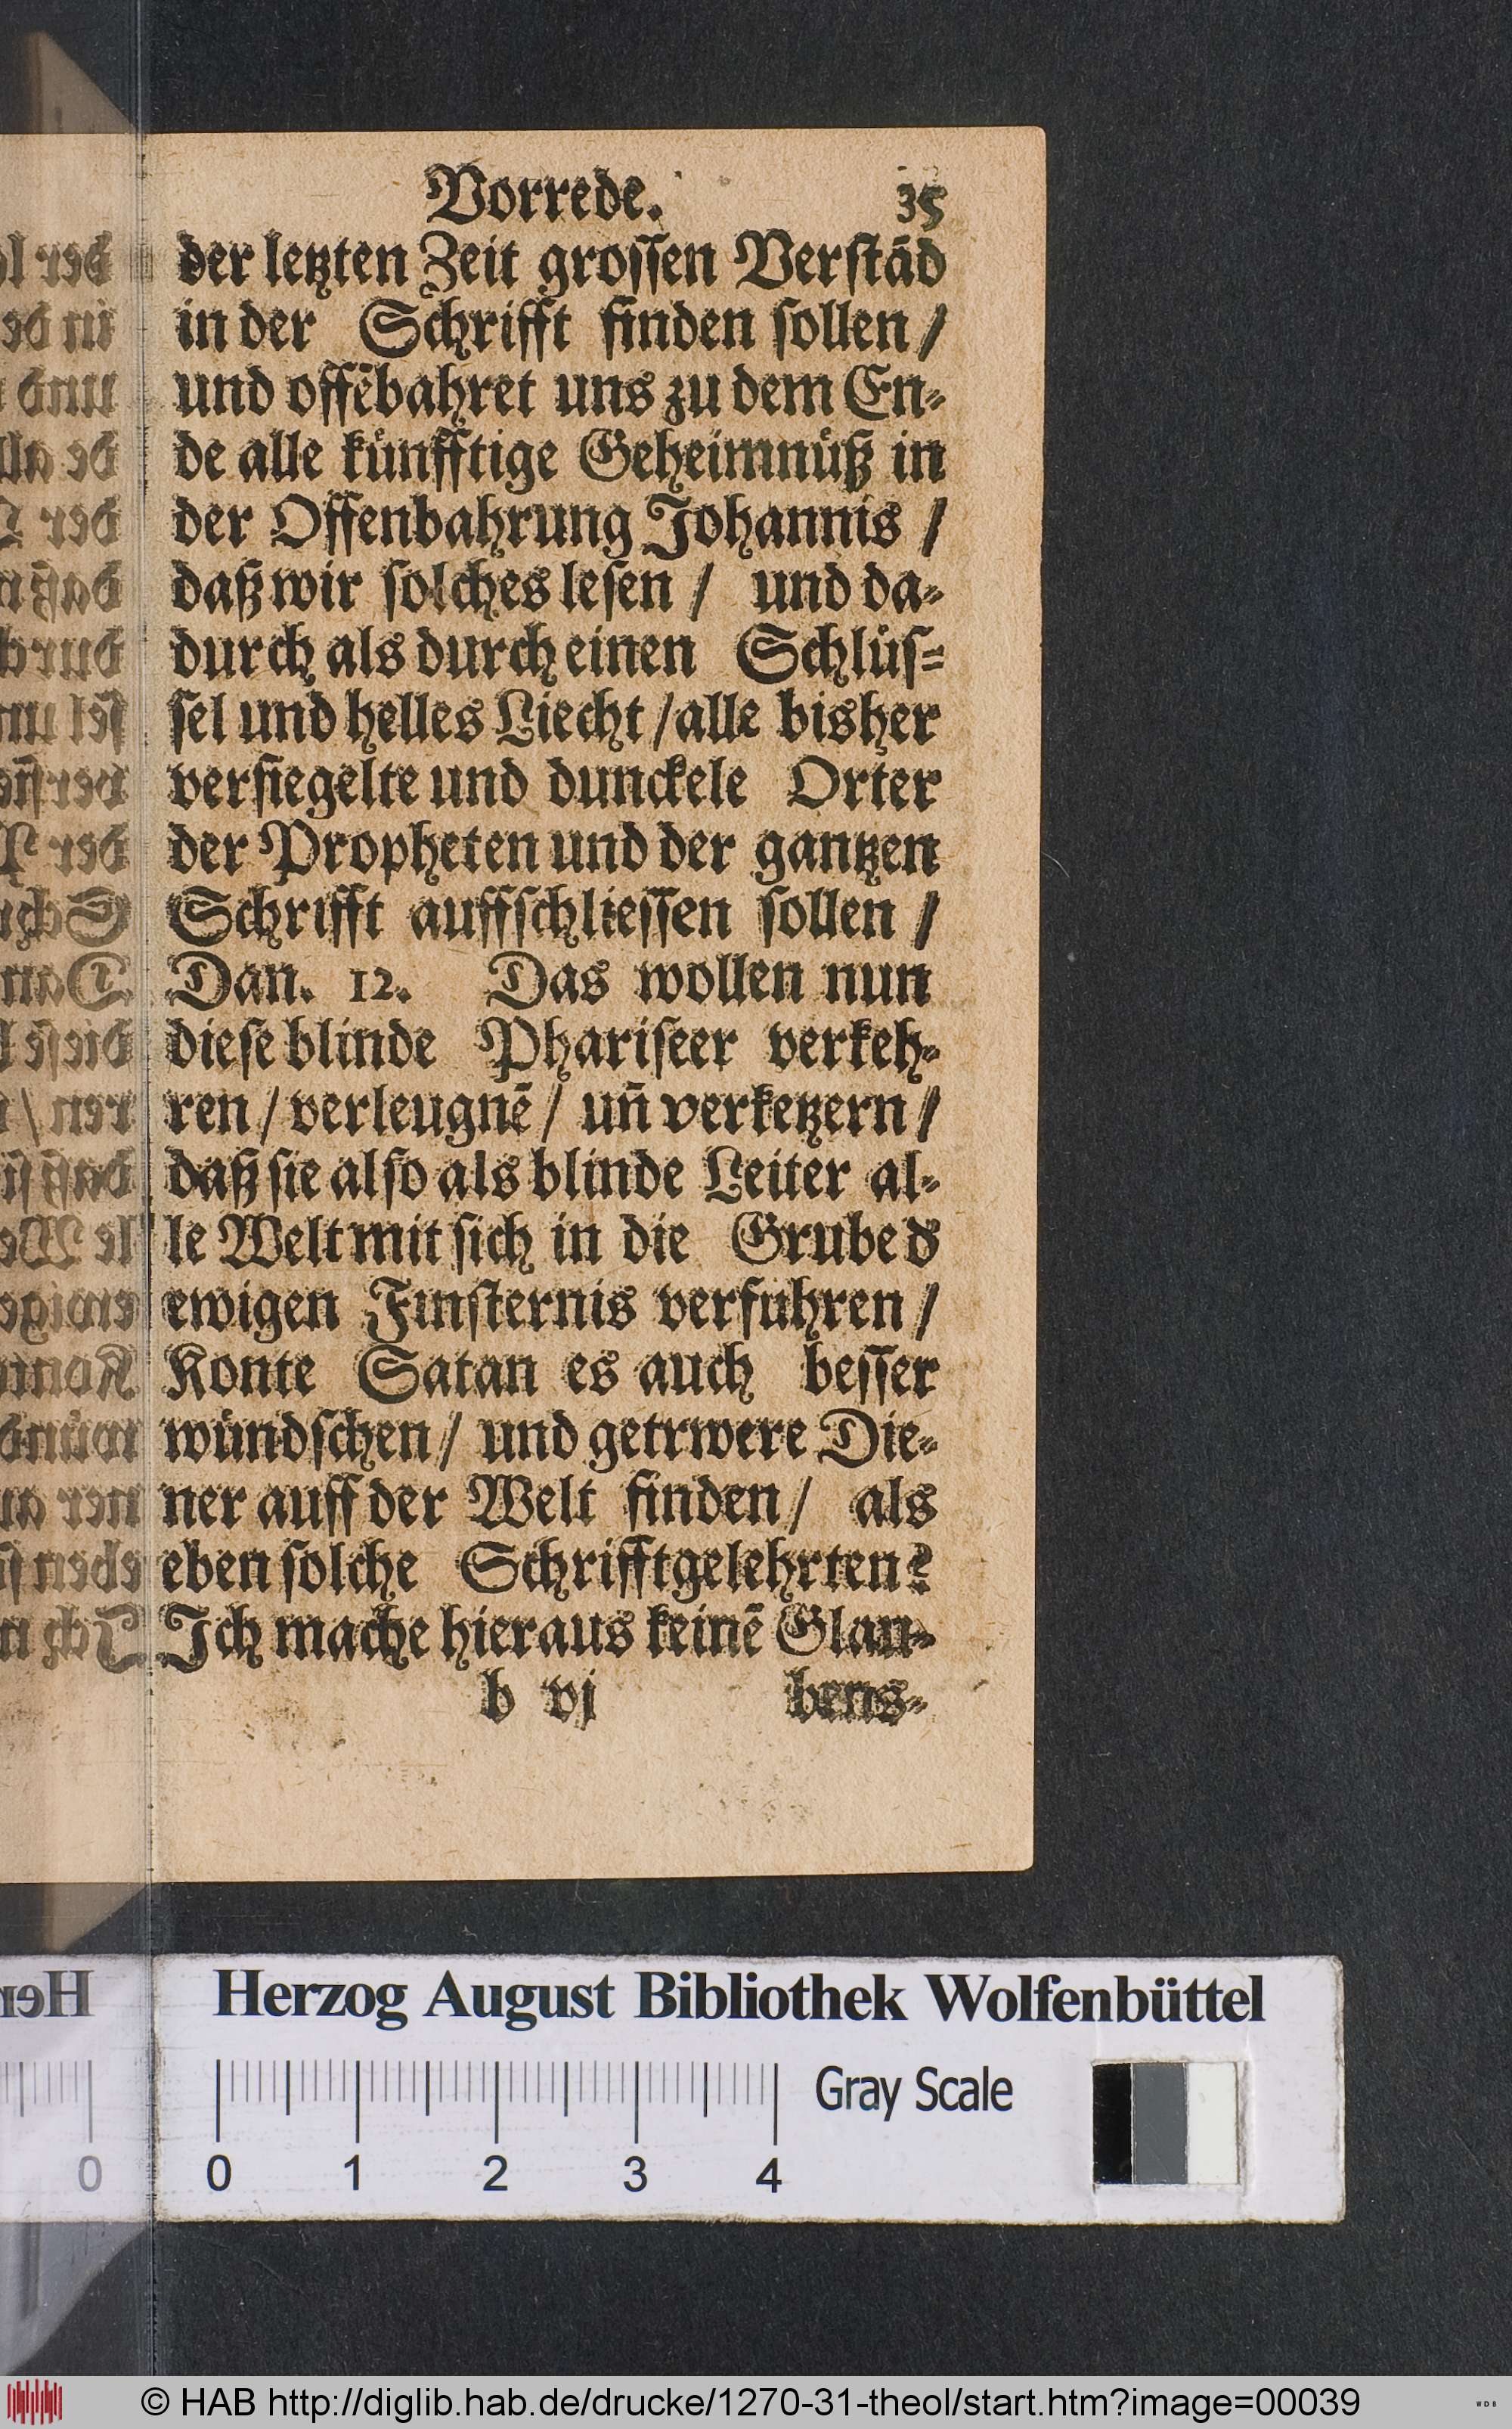 Vorrede. 35
der letzten Zeit grossen Verstād
in der Schrifft finden sollen /
und offēbahret uns zu dem En-
de alle künfftige Geheimnüß in
der Offenbahrung Johannis /
daß wir solches lesen / und da-
durch als durch einen Schlüs-
sel und helles Liecht / alle bisher
versiegelte und dunckele Orter
der Propheten und der gantzen
Schrifft auffschliessen sollen /
Dan. 12. Das wollen nun
diese blinde Phariseer verkeh-
ren / verleugnē / uñ verketzern /
daß sie also als blinde Leiter al-
le Welt mit sich in die Grube d'
ewigen Finsternis verfuhren /
Konte Satan es auch besser
wündschen / und getrwere Die-
ner auff der Welt finden / als
eben solche Schrifftgelehrten?
Ich mache hieraus keinē Glau-
b vj bens-
Herzog August Bibliothek Wolfenbüttel
Gray Scale
0 1 2 3 4
© HAB http://diglib.hab.de/drucke/1270-31-theol/start.htm?image=00039
WDB